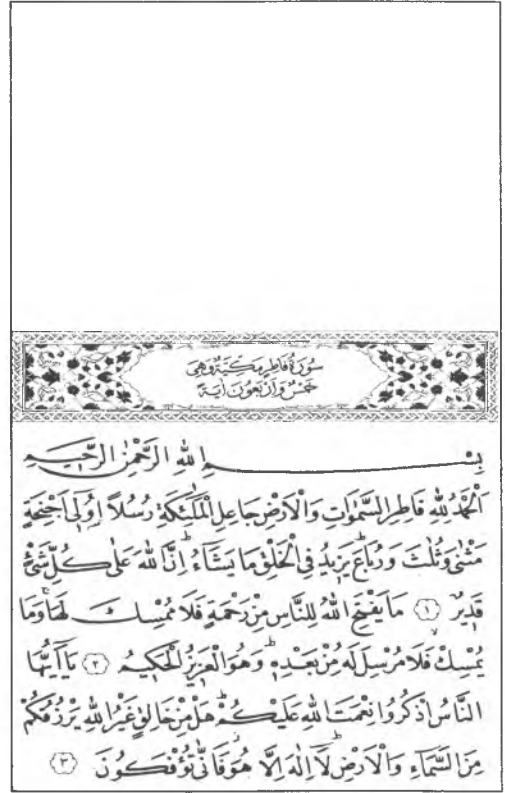 سُورَةُ فَاطِرٍ مَكِّيَّةٌ وَهِيَ
خَمْسٌ وَأَرْبَعُونَ اٰيَةً
بِسْمِ اللهِ الرَّحْمٰنِ الرَّحِيمِ
اَلْحَمْدُ لِلّٰهِ فَاطِرِ السَّمٰوَاتِ وَالْاَرْضِ جَاعِلِ الْمَلٰٓئِكَةِ رُسُلاً اُو۬لٖٓى اَجْنِحَةٍ
مَثْنٰى وَثُلٰثَ وَرُبَاعَ يَزٖيدُ فِى الْخَلْقِ مَا يَشَٓاءُ اِنَّ اللهَ عَلٰى كُلِّ شَىْءٍ
قَدٖيرٌ ﴿١﴾ مَا يَفْتَحِ اللهُ لِلنَّاسِ مِنْ رَحْمَةٍ فَلَا مُمْسِكَ لَهَا وَمَا
يُمْسِكْ فَلَا مُرْسِلَ لَهُ مِنْ بَعْدِهٖ وَهُوَ الْعَزٖيزُ الْحَكٖيمُ ﴿٢﴾ يَٓا اَيُّهَا
النَّاسُ اذْكُرُوا نِعْمَتَ اللهِ عَلَيْكُمْ هَلْ مِنْ خَالِقٍ غَيْرُ اللهِ يَرْزُقُكُمْ
مِنَ السَّمَٓاءِ وَالْاَرْضِ لَٓا اِلٰهَ اِلَّا هُوَ فَاَنّٰى تُؤْفَكُونَ ﴿٣﴾